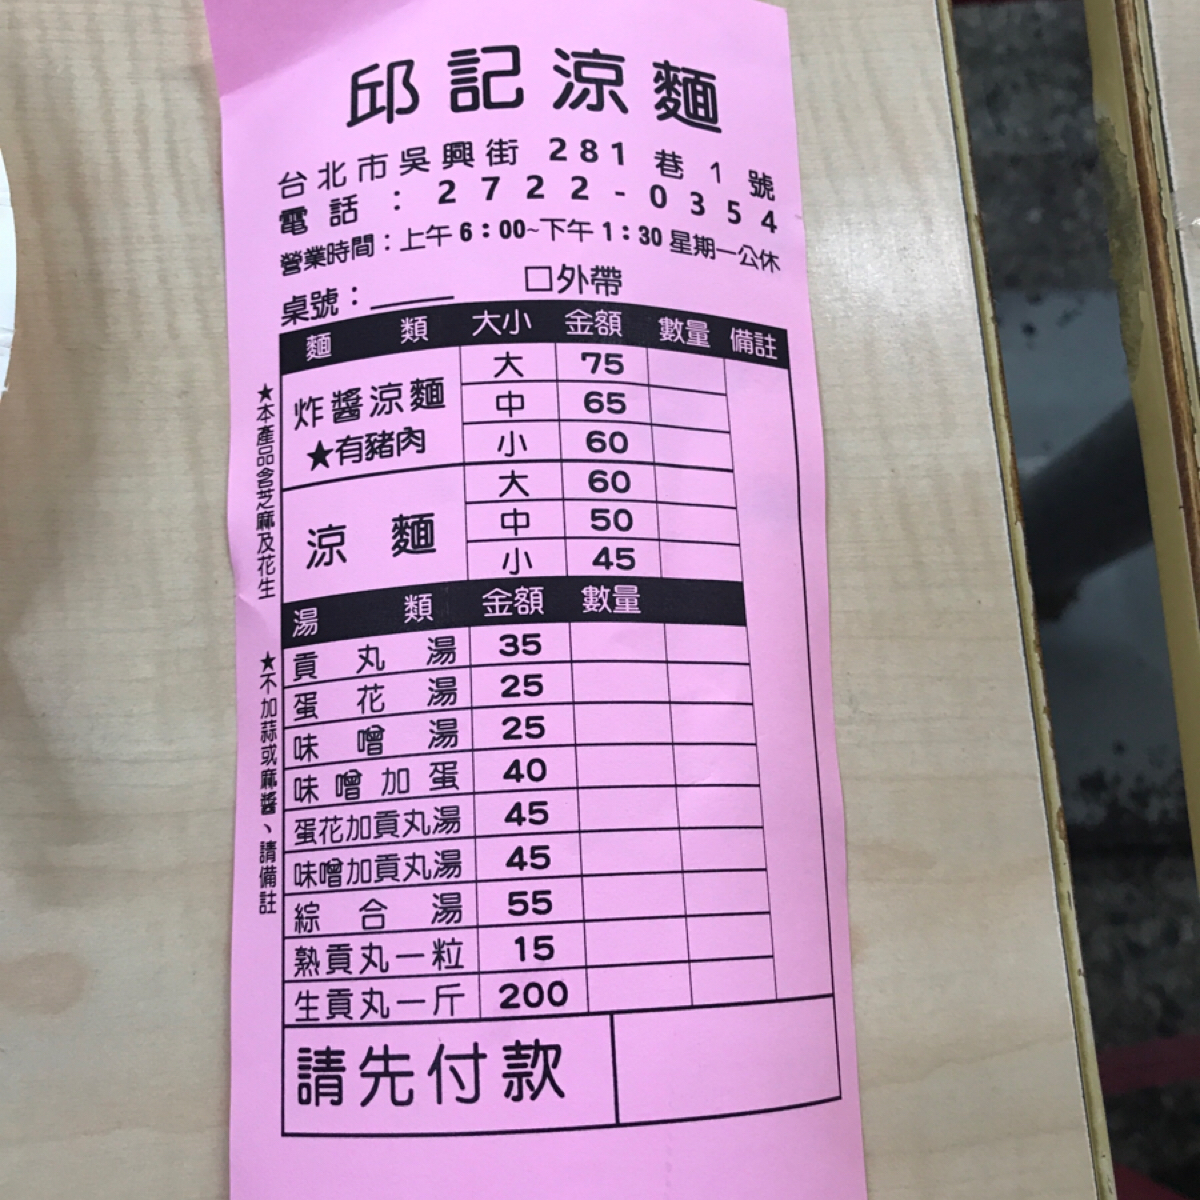 邱記涼麵
台北市吳興街281巷1號
電話:2722-0354
營業時間:上午6:00~下午1:30星期一公休
桌號:____ □外帶
麵類 大小 金額 數量 備註
炸醬涼麵
★有豬肉
大 75
中 65
小 60
涼麵
大 60
中 50
小 45
湯類 金額 數量
貢丸湯 35
蛋花湯 25
味噌湯 25
味噌加蛋 40
蛋花加貢丸湯 45
味噌加貢丸湯 45
綜合湯 55
熟貢丸一粒 15
生貢丸一斤 200
請先付款
★本產品含芝麻及花生
★不加蒜或麻醬、請備註